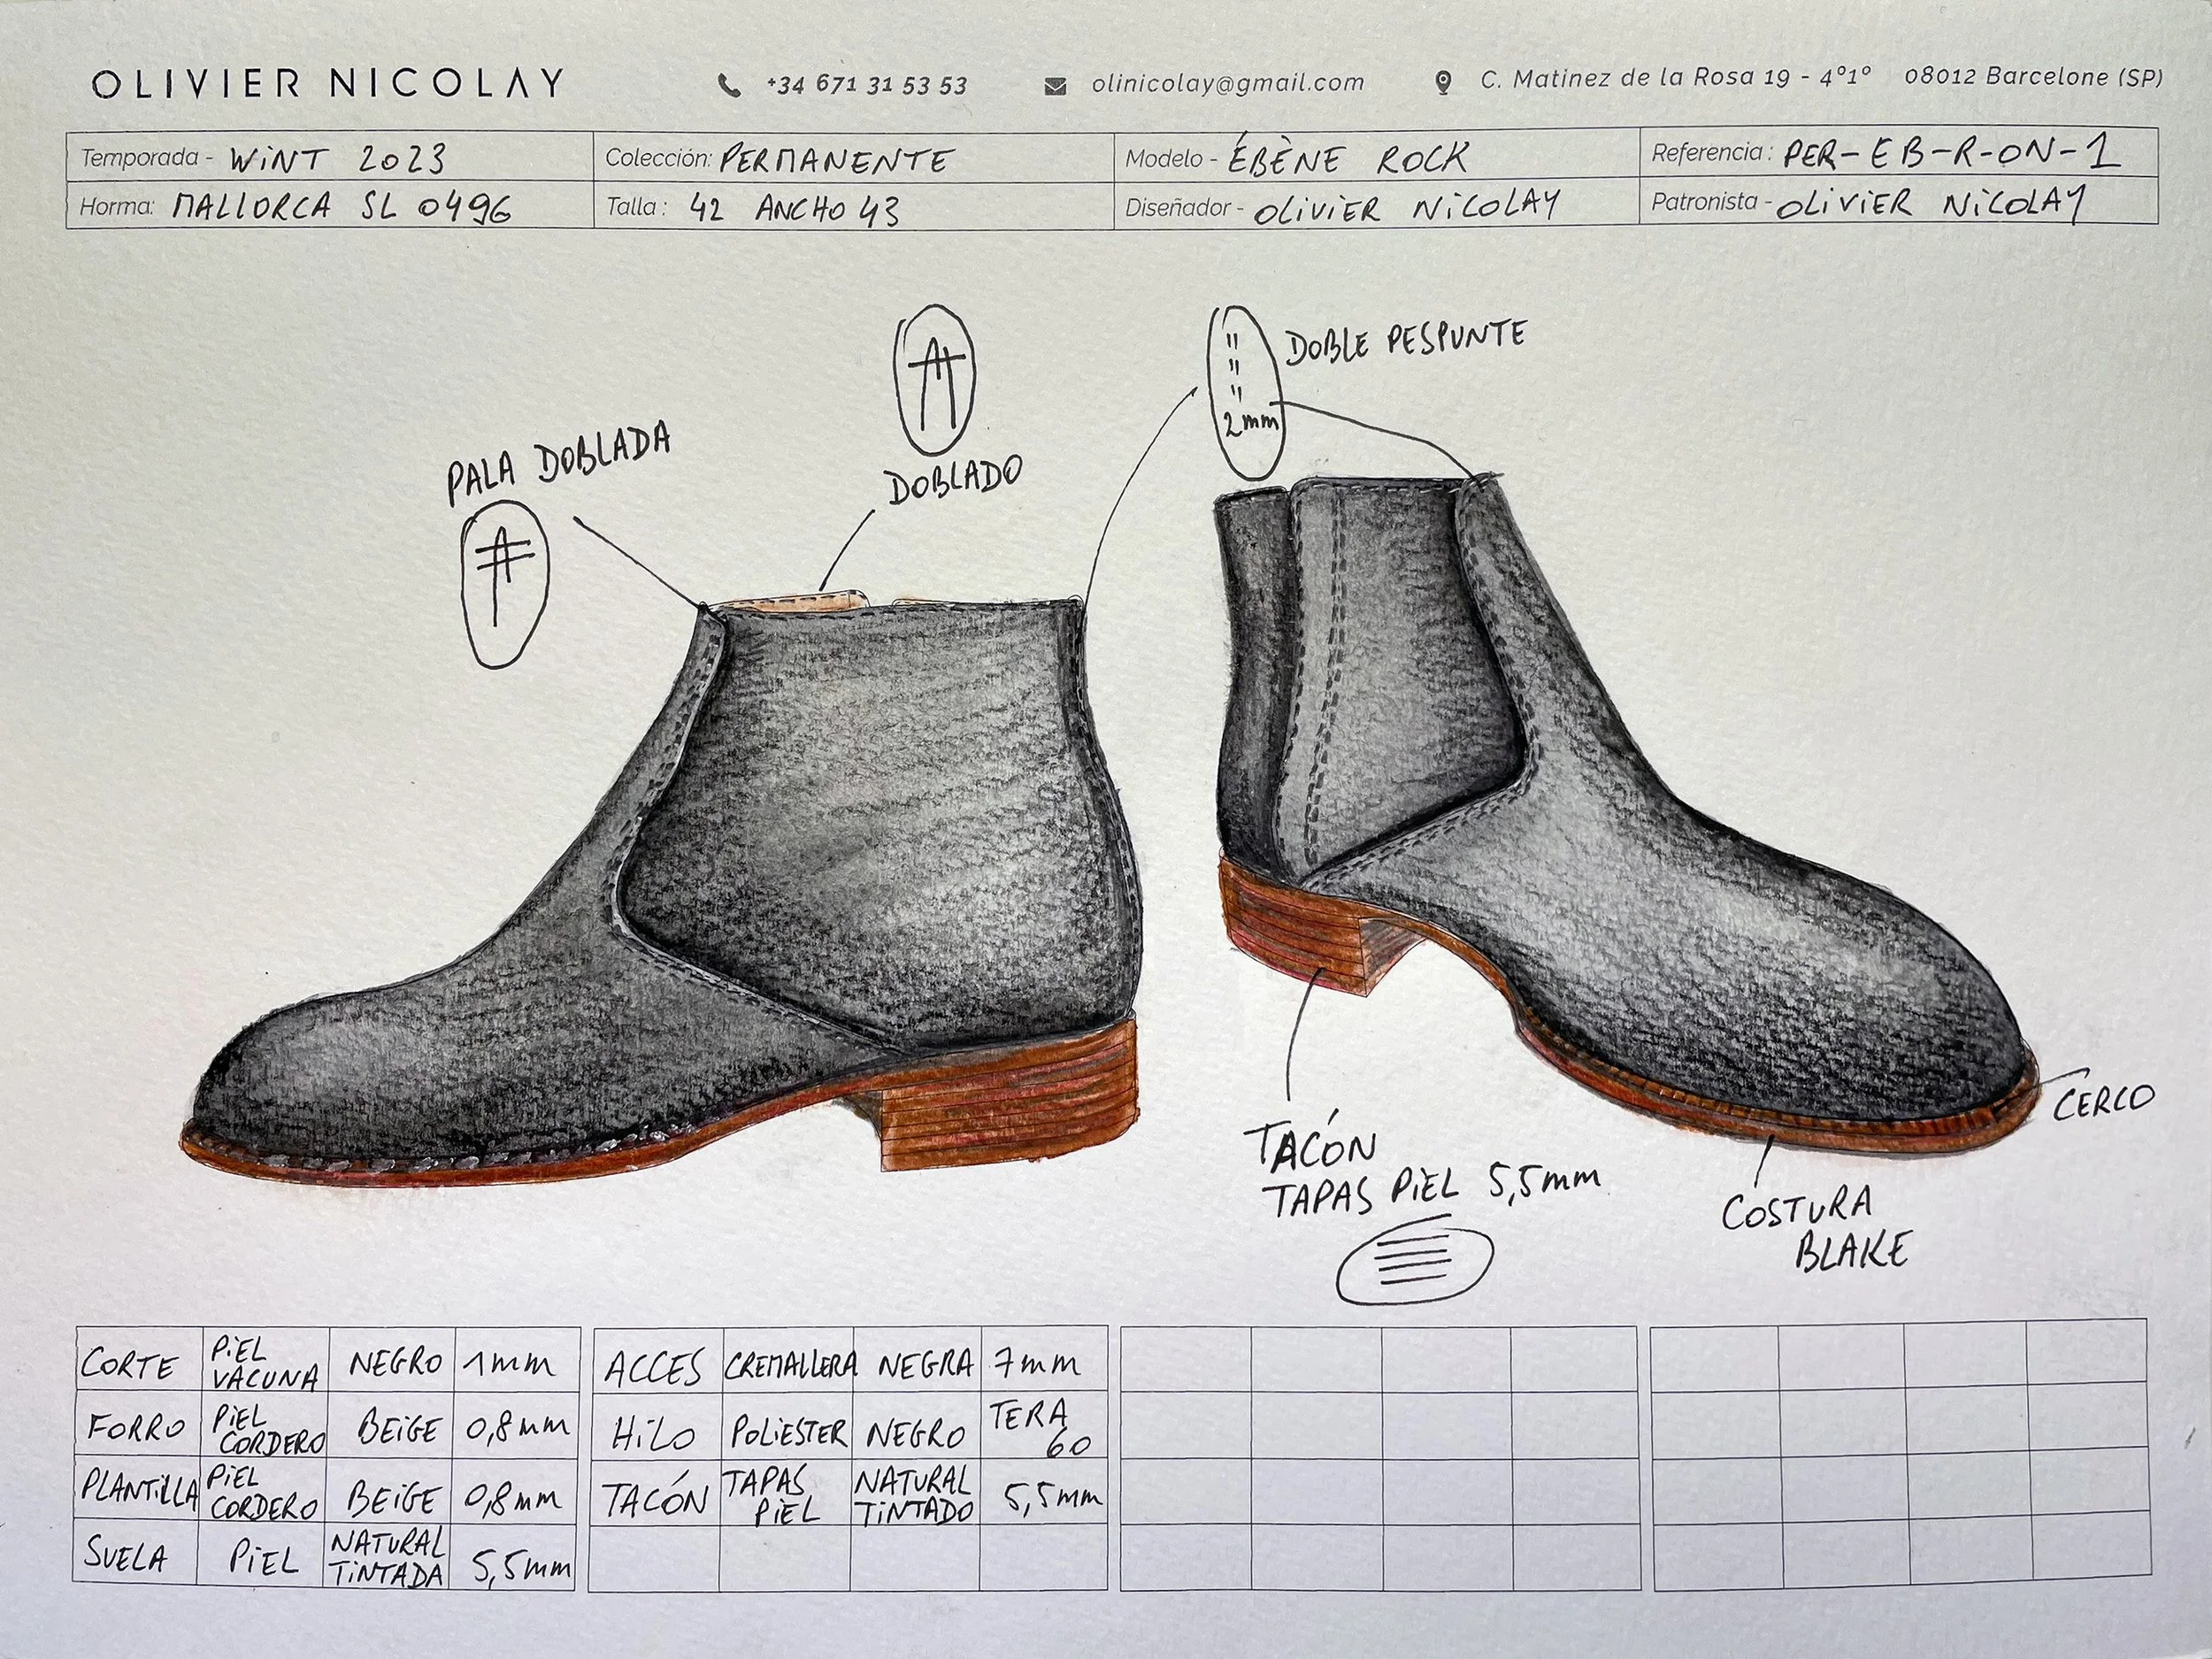 OLIVIER NICOLAY +34 671 31 53 53 olinicolay@gmail.com C. Matinez de la Rosa 19 - 4º1º 08012 Barcelone (SP)
Temporada - WINT 2023 Colección: PERMANENTE Modelo - ÉBÈNE ROCK Referencia: PER-EB-R-ON-1
Horma: MALLORCA SL 0496 Talla: 42 ANCHO 43 Diseñador - OLIVIER NICOLAY Patronista - OLIVIER NICOLAY
DOBLE PESPUNTE
2mm
PALA DOBLADA
DOBLADO
CERCO
TACÓN
TAPAS PIEL 5,5mm
COSTURA
BLAKE
CORTE PIEL VACUNA NEGRO 1mm
FORRO PIEL CORDERO BEIGE 0,8mm
PLANTILLA PIEL CORDERO BEIGE 0,8mm
SUELA PIEL NATURAL TINTADA 5,5mm
ACCES CREMALLERA NEGRA 7mm
HILO POLIESTER NEGRO TERA 60
TACÓN TAPAS PIEL NATURAL TINTADO 5,5mm